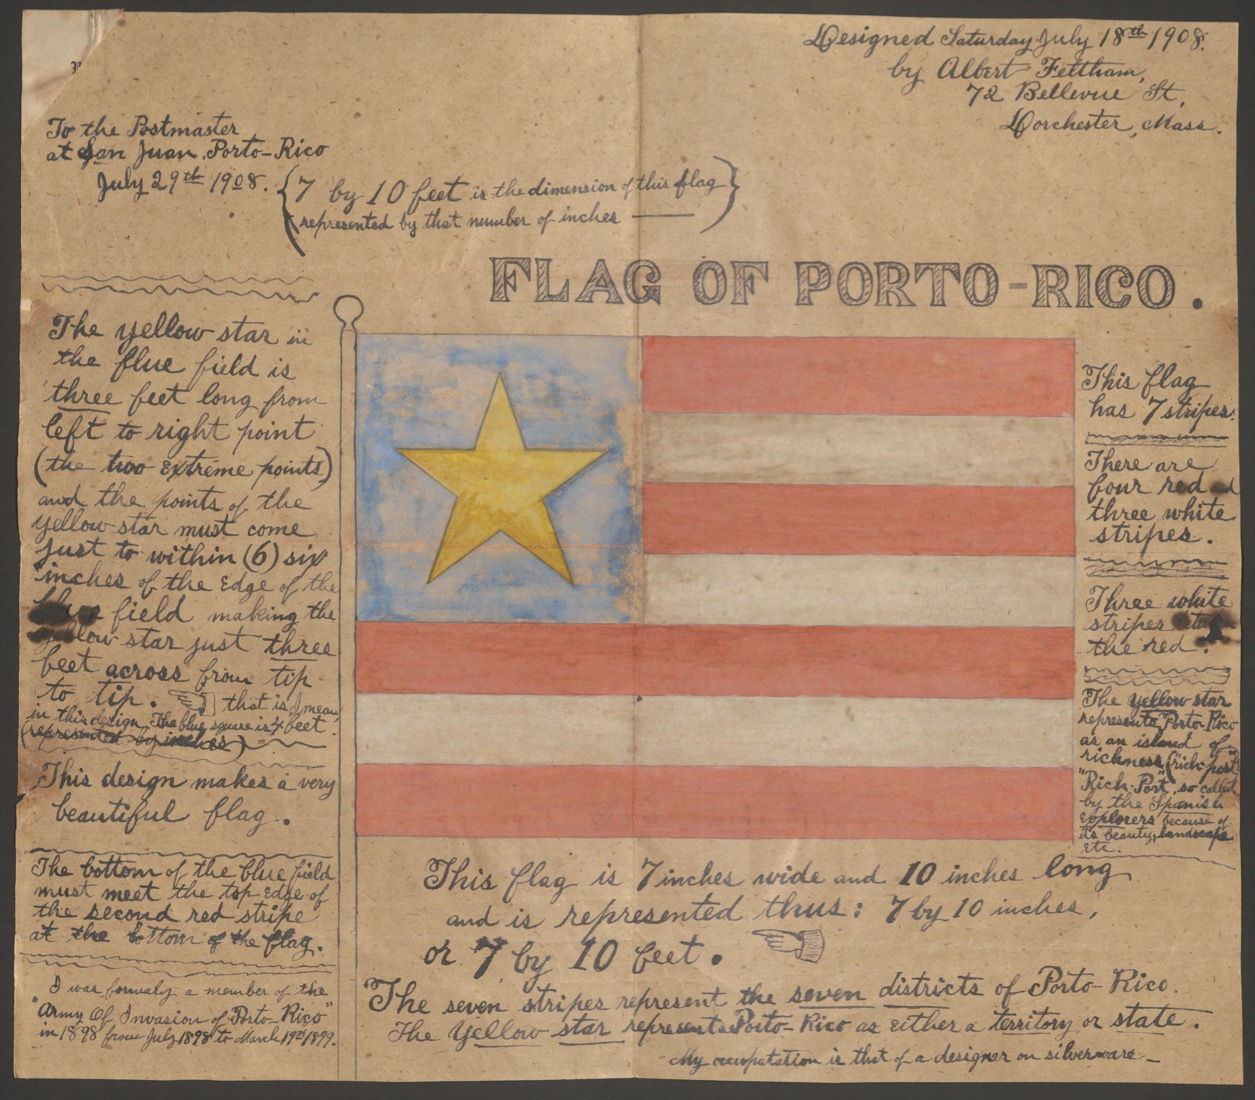 Designed Saturday July 18th 1908.
by Albert Feltham,
72 Bellevue St,
Dorchester, Mass.
To the Postmaster
at San Juan, Porto-Rico
July 29th 1908.
7 by 10 feet is the dimension of this flag
represented by that number of inches
FLAG OF PORTO-RICO.
The yellow star in
the blue field is
three feet long from
left to right point
(the two extreme points)
and the points of the
yellow star must come
just to within (6) six
inches of the edge of the
blue field making the
yellow star just three
feet across from tip
to tip. that is I mean
in this design. The blue square is 4 feet
(represented by inches)
This design makes a very
beautiful flag.
The bottom of the blue field
must meet the top edge of
the second red stripe
at the bottom of the flag.
I was formaly a member of the
"Army Of Invasion of Porto-Rico"
in 1898 from July 1898 to March 19th 1899.
This flag
has 7 stripes.
There are
four red
three white
stripes.
Three white
stripes
the red.
The yellow star
represents Porto-Rico
as an island of
richness ("rich-port"
"Rich-Port", so called
by the Spanish
explorers because of
its beauty, landscape
etc.
This flag is 7 inches wide and 10 inches long
and is represented thus: 7 by 10 inches,
or 7 by 10 feet.
The seven stripes represent the seven districts of Porto-Rico.
The yellow star represents Porto-Rico as either a territory or state.
My occupatation is that of a designer on silverware